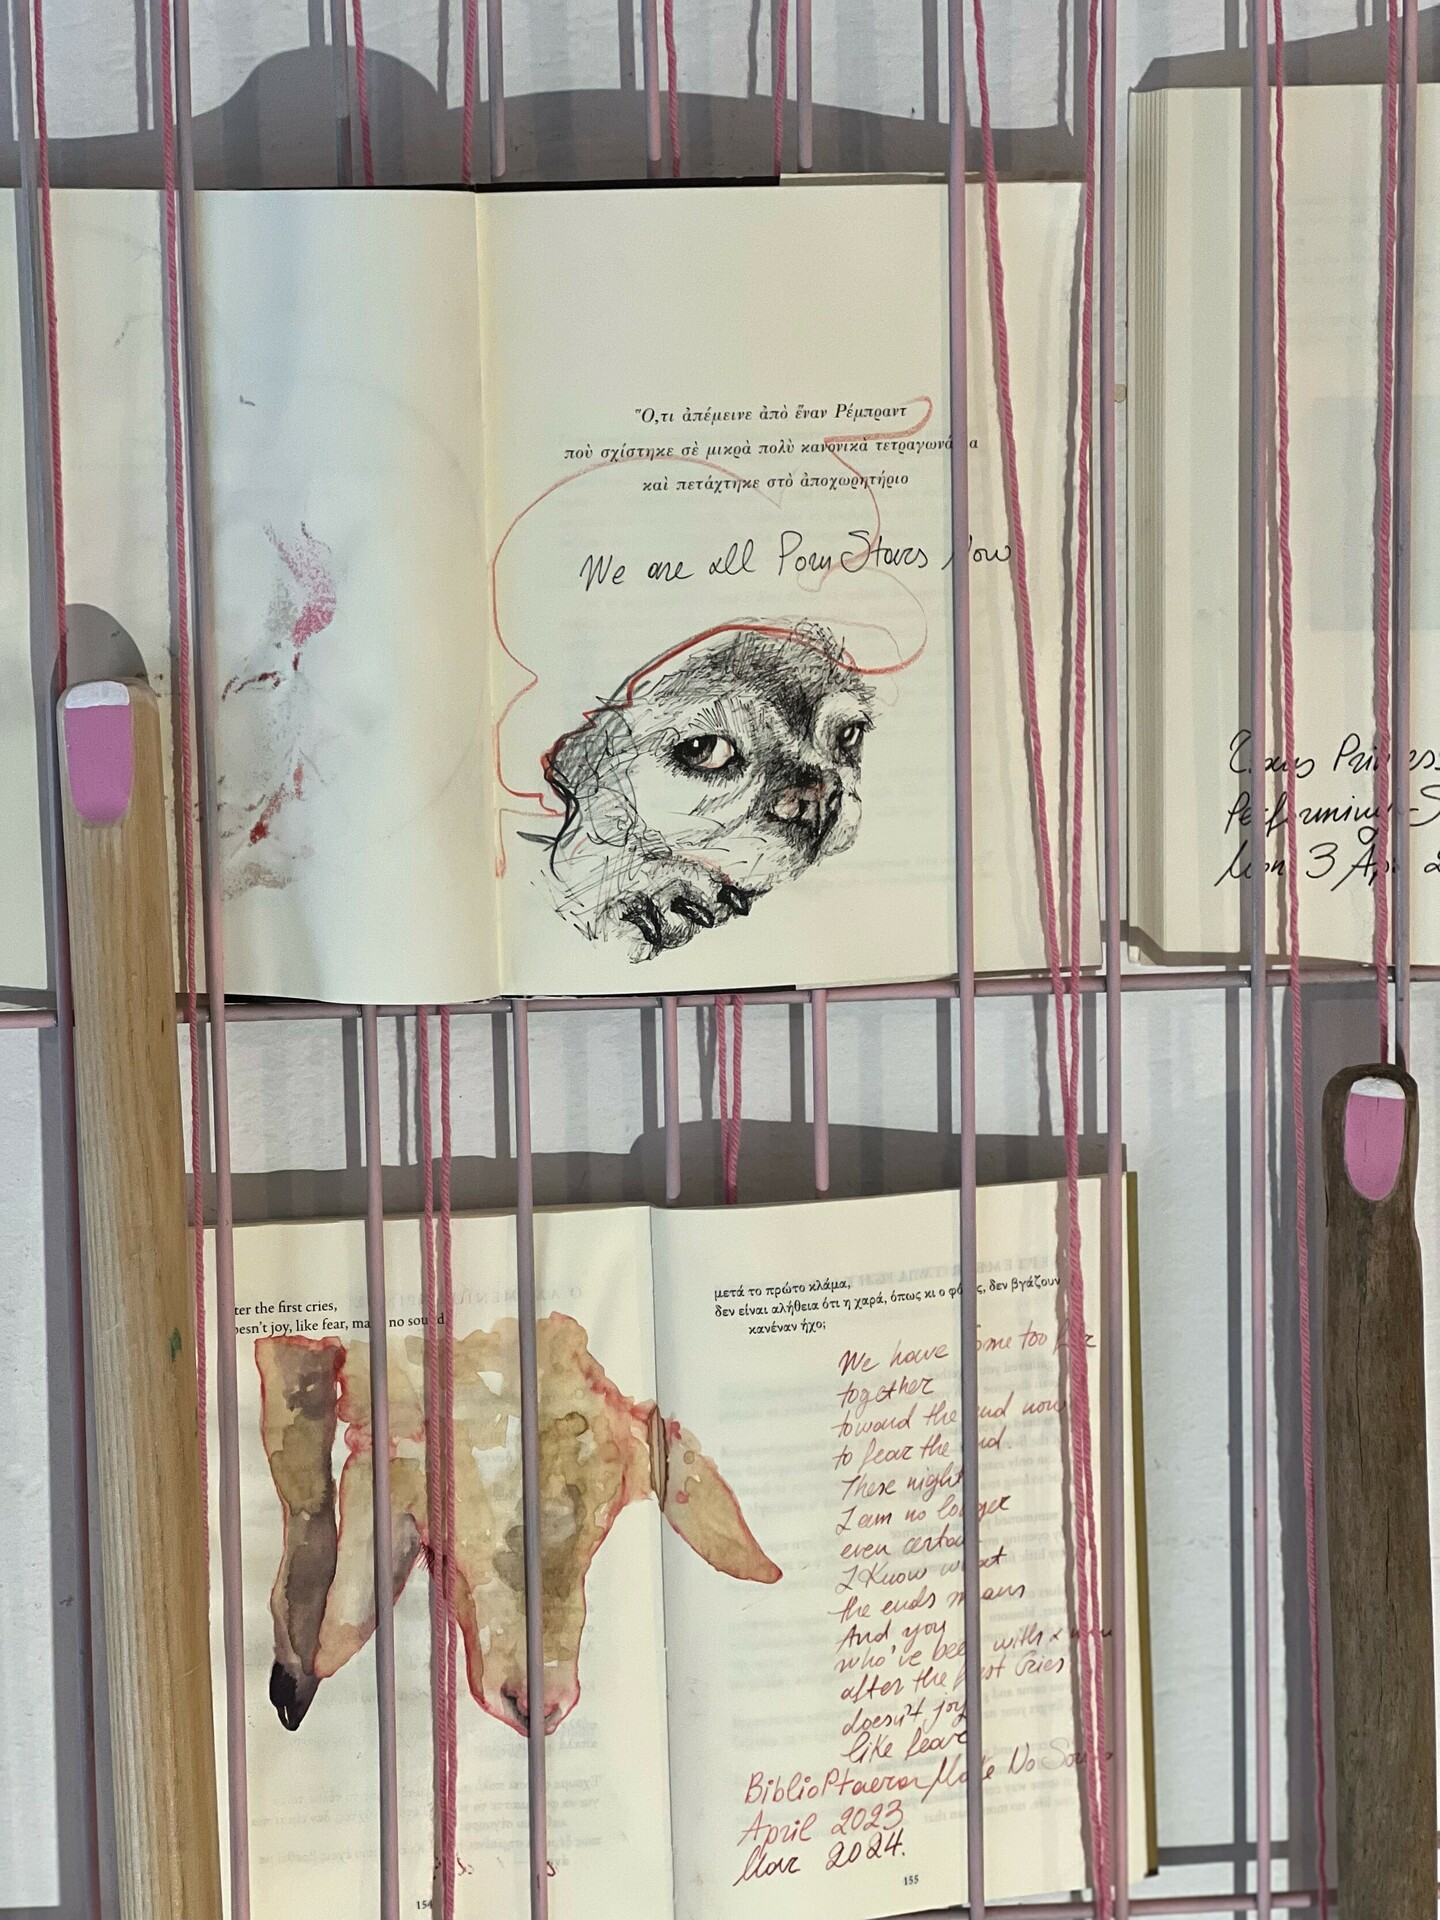 "Ὅ,τι ἀπέμεινε ἀπὸ ἕναν Ρέμπραντ
ποὺ σχίστηκε σὲ μικρὰ πολὺ κανονικὰ
καὶ πετάχτηκε στὸ ἀποχωρητήριο
We are all Porn Stars Now
3
ter the first cries,
esn't joy, like fear, no sound
μετά το πρώτο κλάμα,
δεν είναι αλήθεια ότι η χαρά, όπως κι ο δεν βγάζουν
κανέναν ήχο;
We have too
together
toward the end now
to fear the end.
These night
I am no longer
even
I Know what
the ends means
And you
who've been with
after the first Cries
doesn't joy
like fear
No
April 2023
2024.
154
155